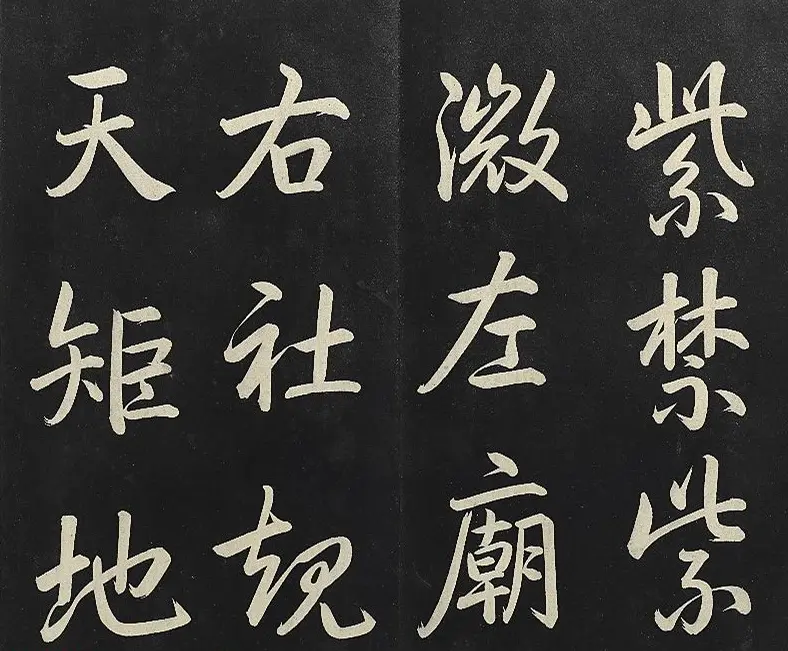 紫禁紫
微左廟
右社規
天矩地